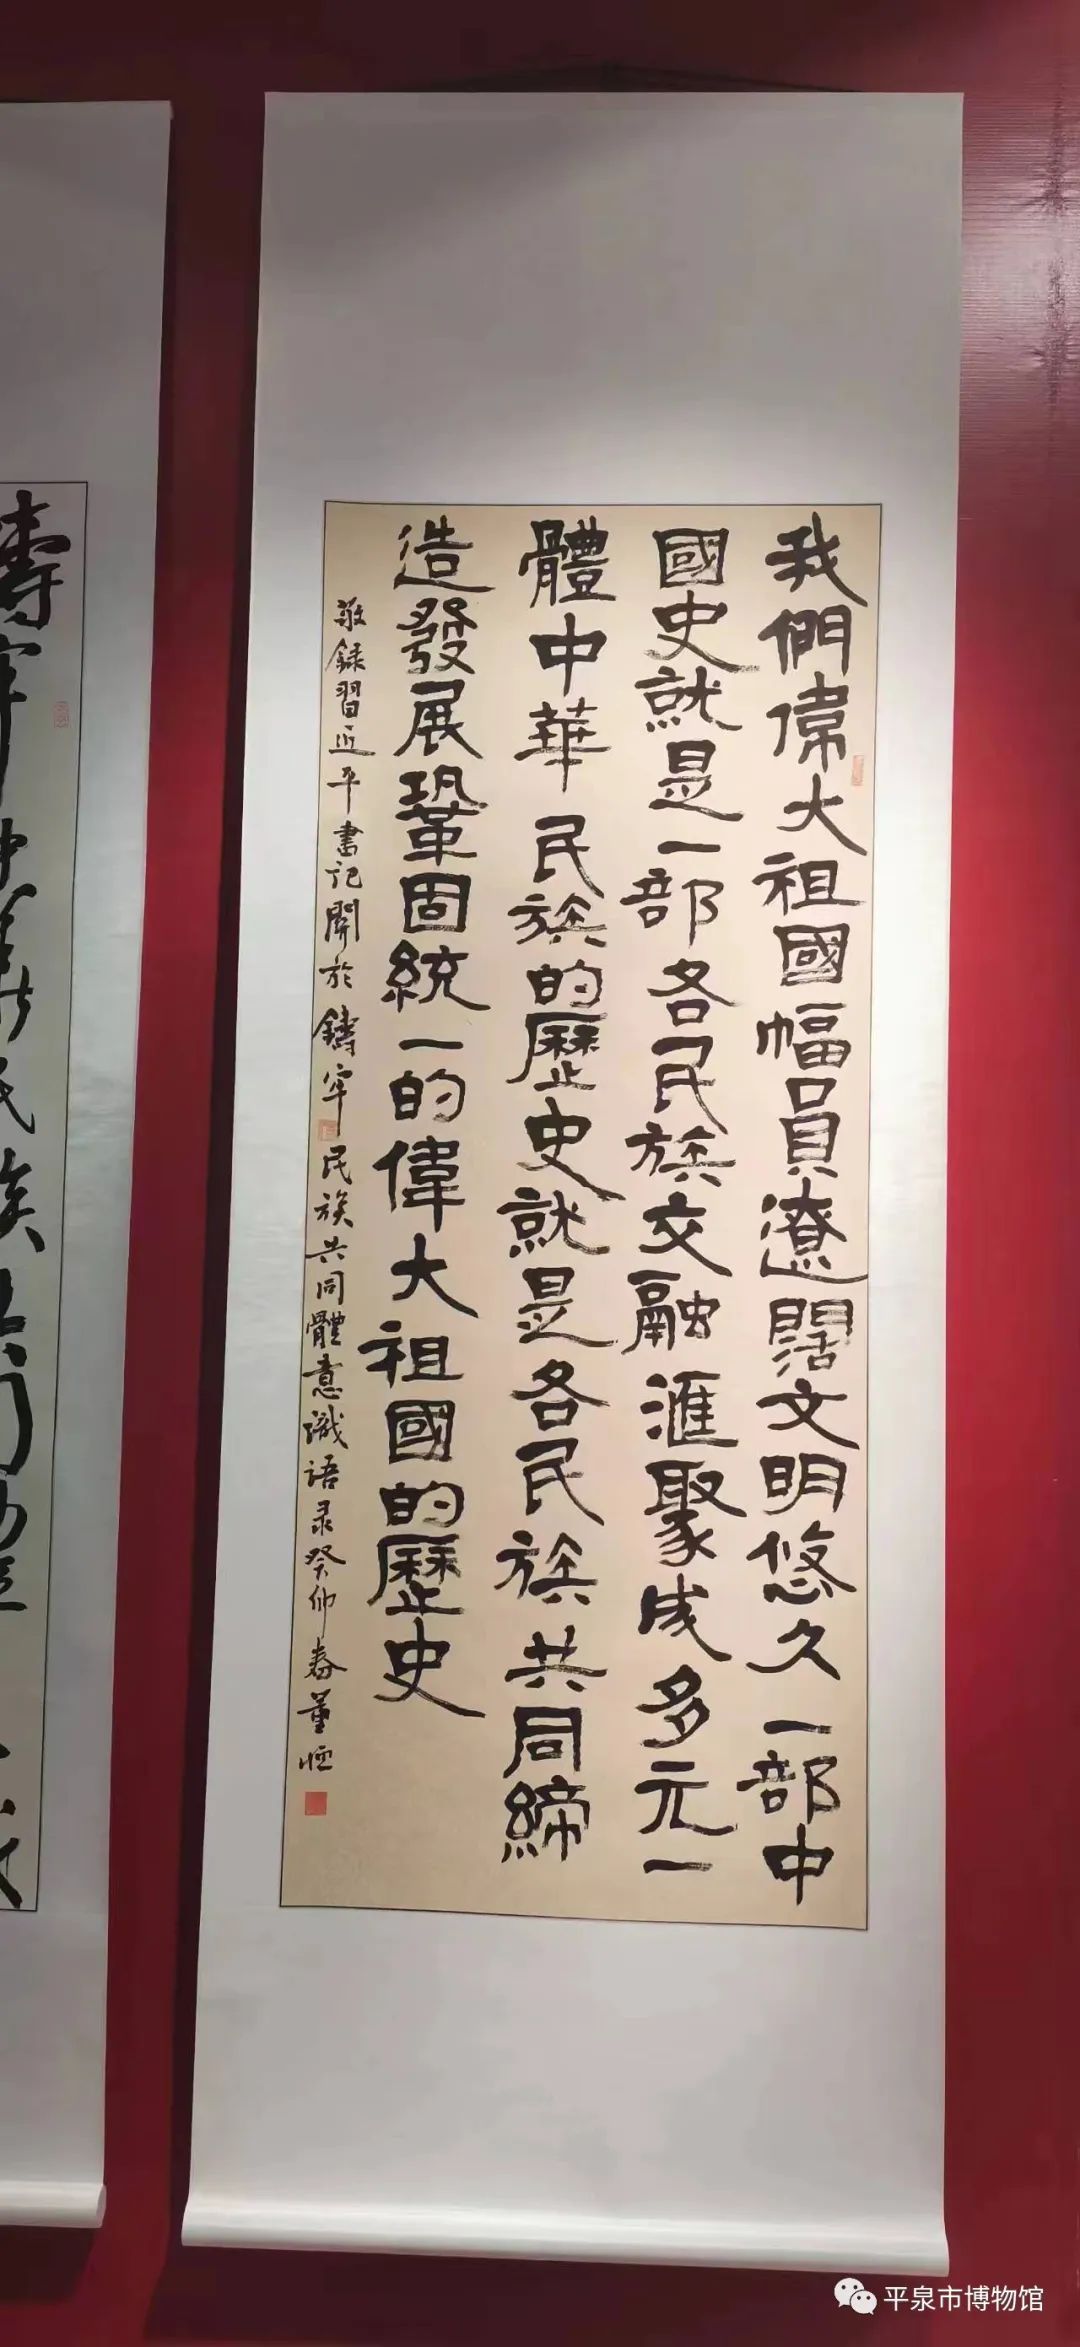 我們偉大祖國幅員遼闊文明悠久一部中
國史就是一部各民族交融滙聚成多元一
體中華民族的歷史就是各民族共同締
造發展鞏固統一的偉大祖國的歷史
敬録習近平書記關於鑄牢民族共同體意識语录癸卯春董恒
鑄牢中華民族共同
平泉市博物馆